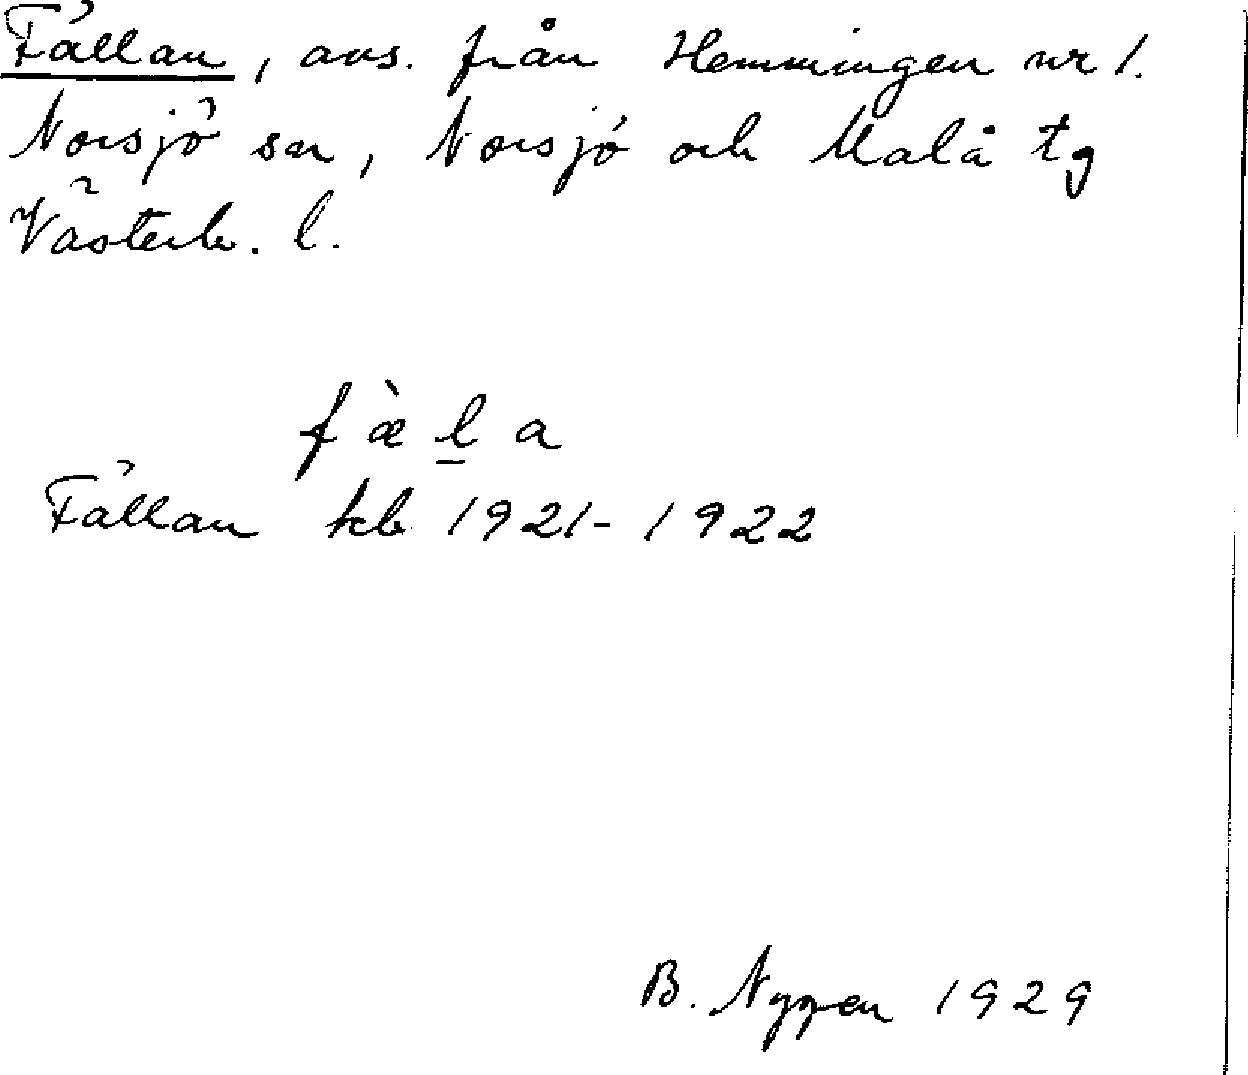 Fällan, avs. från Hemmingen nr 1.
Norsjö sn, Norsjö och Malå tg
Västerb. l.
f æ̀ l̲ a
Fällan kb 1921-1922
B. Nygren 1929